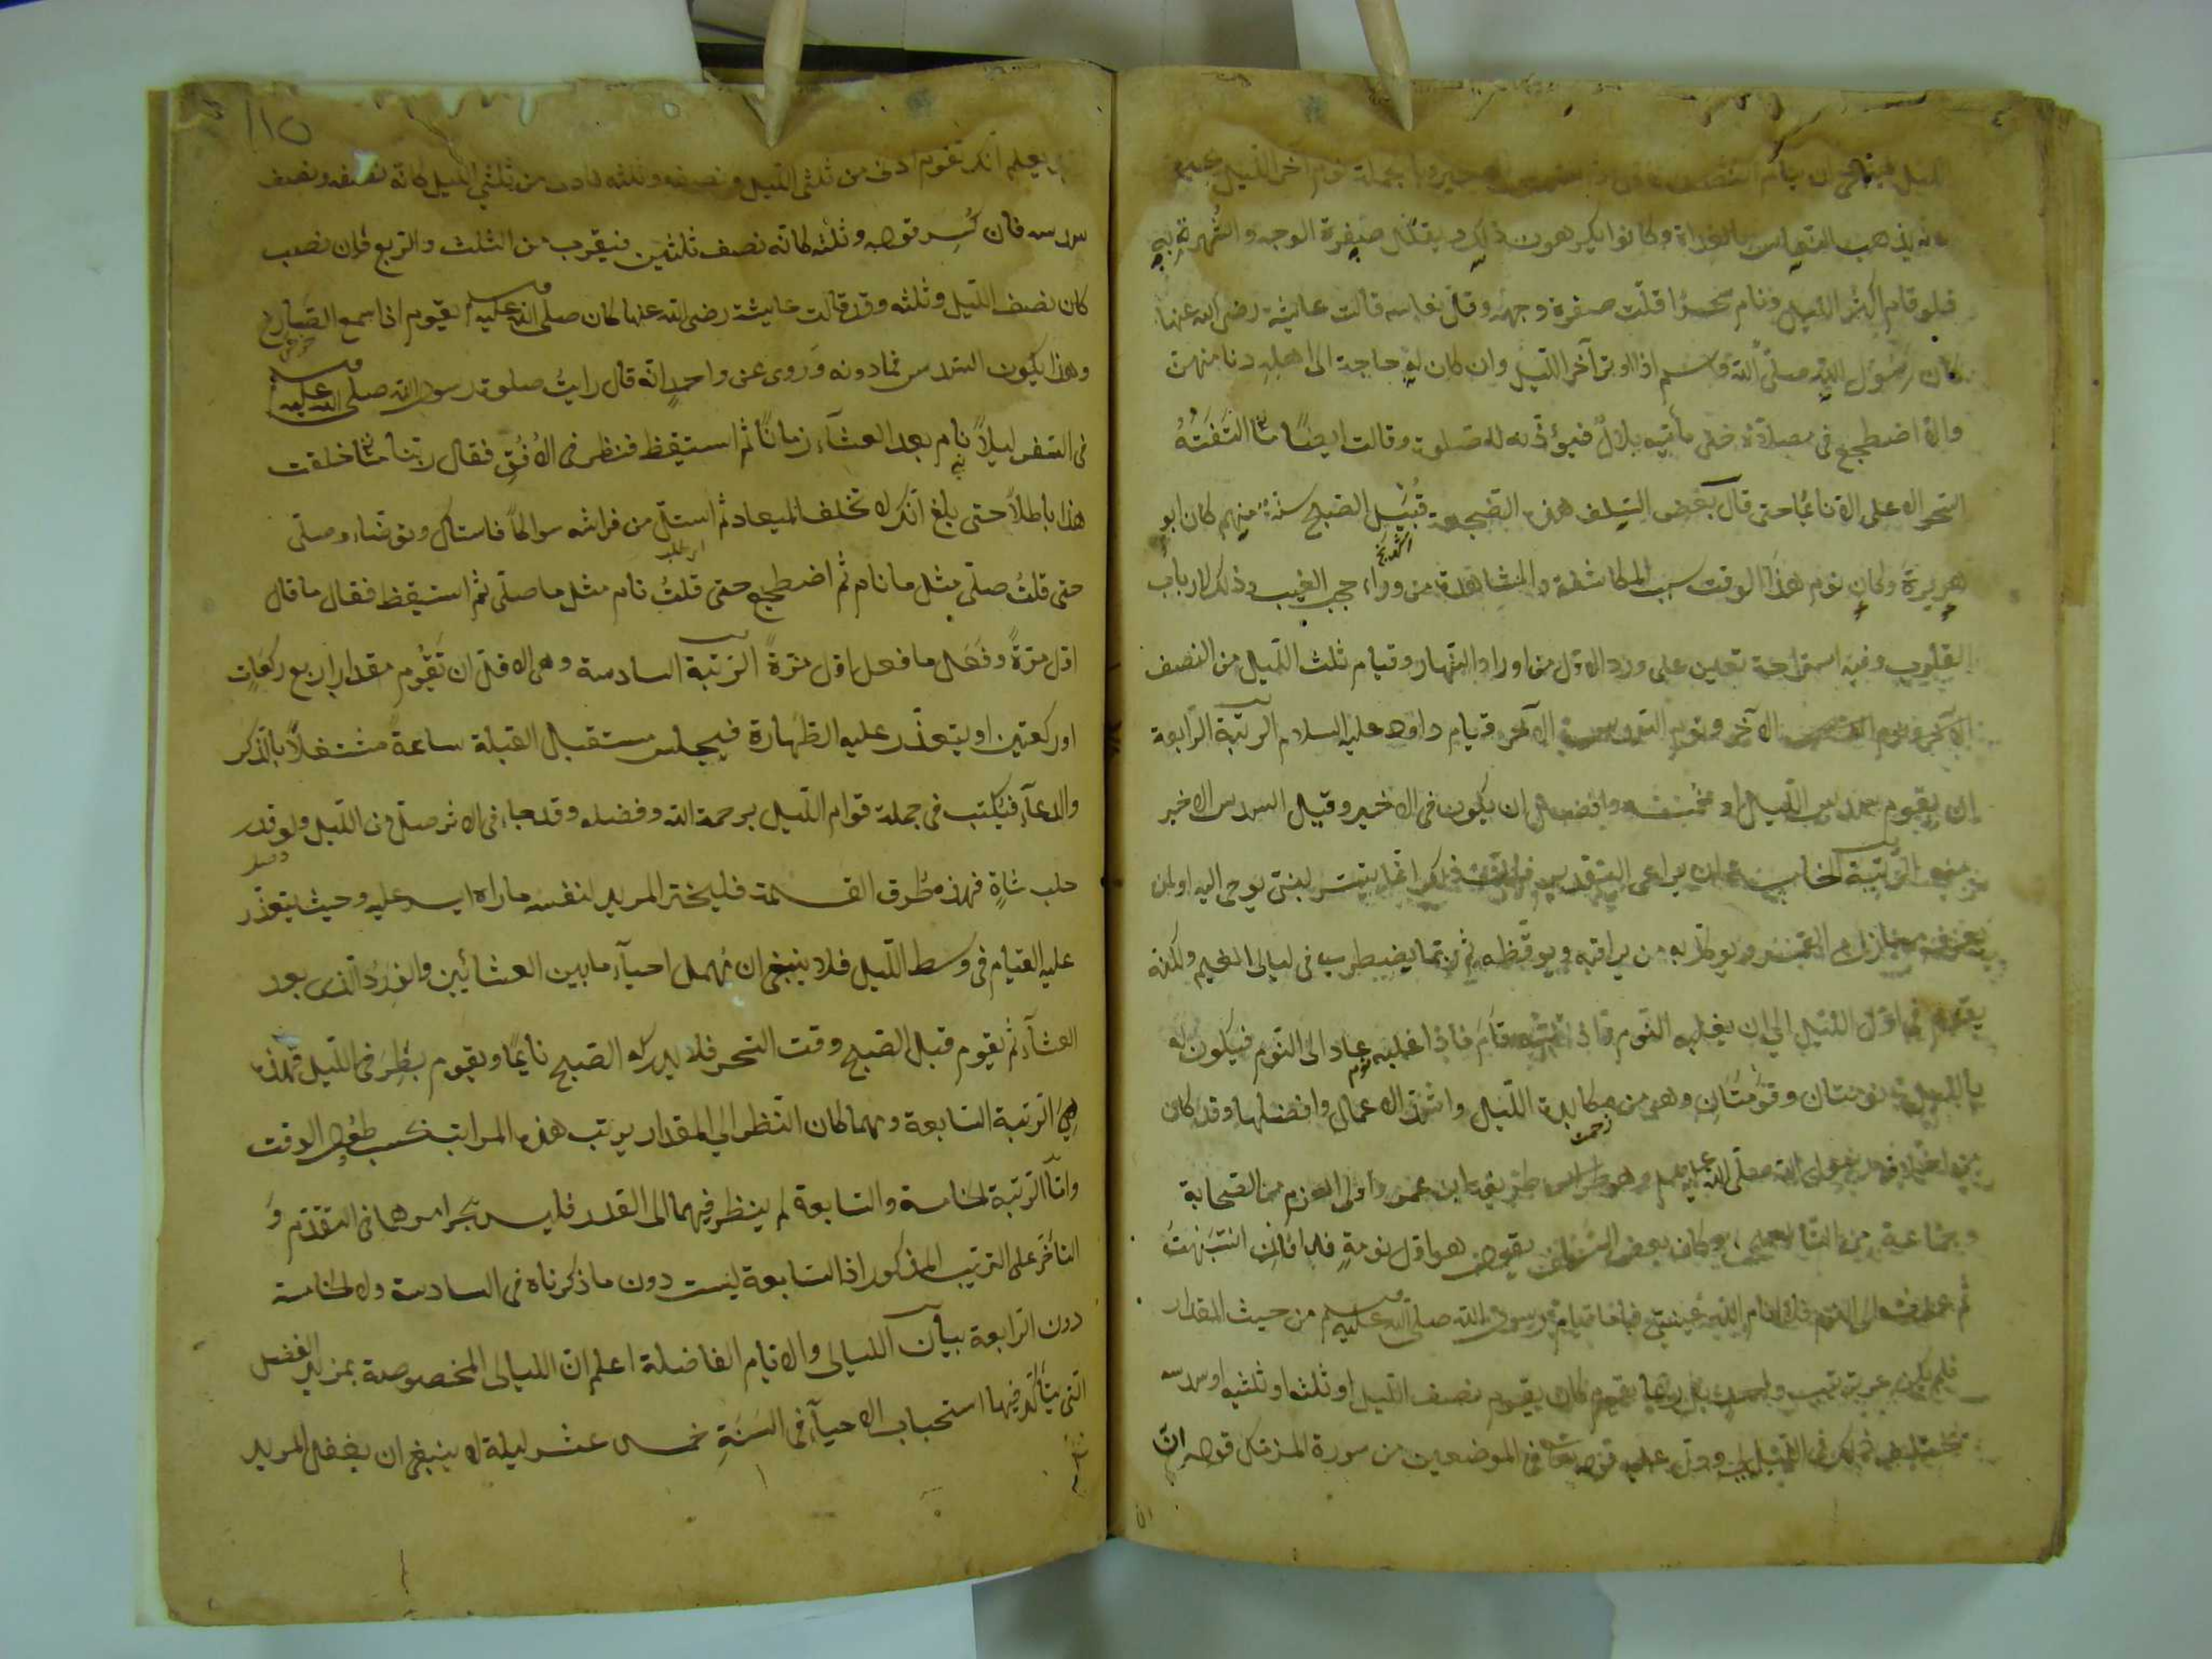 الليل فينبغى ان ينام النصف الاخير وبالجملة نوم آخر الليل محبوب
لانه يذهب النعاس بالغداة وكانوا يكرهون ذلك ويقلل صفرة الوجه والشهرة به
فلو قام اكثر الليل ونام سحرا قلّت صفرة وجهه وقلّ نعاسه قالت عايشة رضى الله عنها
كان رسول الله صلى الله وسلم اذا اوتر آخر الليل وان كان له حاجة الى اهله دنا منهن
والا اضطجع فى مصلاه حتى يأتيه بلال فيؤذنه للصلوة وقالت ايضًا ما الفته
السحر الاعلى الا نائمًا حتى قال بعض السلف هذه الضجعة قبيل الصبح سنة منهم كان ابو
هريرة وكان نوم هذا الوقت سبب المكاشفة والمشاهدة من وراء حجب الغيب وذلك لارباب
القلوب وفيه استراحة تعين على ورد الاول من اوراد النهار وقيام ثلث الليل من النصف
الآخر ونوم السدس الآخر قيام داود عليه السلام الرتبة الرابعة
ان يقوم سدس الليل او خمسه وافضله ان يكون فى الاخير وقيل السدس الاخير
منه الرتبة الخامسة ان لا يراعى التقدير فان ذلك انما يتيسر لنبى يوحى اليه او لمن
يعرف منازل القمر ويوكل به من يراقبه ويوقظه ثم ربما يضطرب فى ليالى الغيم ولكنه
يقوم من اول الليل الى ان يغلبه النوم فاذا انتبه قام فاذا غلبه عاد الى النوم فيكون له
بالليل نومتان وقومتان وهو من مكابدة الليل واشدّ الاعمال وافضلها وقد كان
من اخلاق رسول الله صلى الله عليه وسلم وهو طريقة ابن عمر واولى العزم من الصحابة
وجماعة من التابعين وكان بعض السلف يقول هو اول نومة فاذا انتبهت
ثم عدت الى النوم فلا انام الله عينى فاما قيام رسول الله صلى الله عليه وسلم من حيث المقدار
فلم يكن على ترتيب واحد بل ربما كان يقوم نصف الليل او ثلثه او ثلثيه او سدسه
يختلف ذلك فى الليالى ودل عليه قوله تعالى فى الموضعين من سورة المزمل قوله ان
ربك يعلم انك تقوم ادنى من ثلثى الليل ونصفه وثلثه فادنى من ثلثى الليل كانه نصفه ونصف
سدسه فان كُسِر قوله وثلثه كانه نصف ثلثين فيقرب من الثلث والربع فان نصب
كان نصف الليل وثلثه وقد قالت عايشة رضى الله عنها كان صلى الله عليه وسلم يقوم اذا سمع الصارخ
وهذا يكون السدس فما دونه وروى عن واحد انه قال رايت صلوة رسول الله صلى الله عليه وسلم
فى السفر ليلاً نام بعد العشآء زمانًا ثم استيقظ فنظر فى الافق فقال ربنا ما خلقت
هذا باطلاً حتى بلغ انك لا تخلف الميعاد ثم استلّ من فراشه سواكًا فاستاك وتوضاء وصلى
حتى قلتُ صلى مثل ما نام ثم اضطجع حتى قلتُ نام مثل ما صلى ثم استيقظ فقال ما قال
اول مرة وفعل ما فعل اول مرة الرتبة السادسة وهى الاقل ان تقوم مقدار اربع ركعات
او ركعتين او يتعذر عليه الطهارة فيجلس مستقبل القبلة ساعة مشتغلاً بالذكر
والدعآء فيكتب فى جملة قوام الليل برحمة الله وفضله وقد جاء فى الاثر صل من الليل ولو قدر
حلب شاة فهذه طرق القسمة فليختر المريد لنفسه ما راه ايسر عليه وحيث يتعذر
عليه القيام فى وسط الليل فلا ينبغى ان يهمل احيآء ما بين العشائين والورد الذى بعد
العشآء ثم يقوم قبل الصبح وقت السحر فلا يدركه الصبح نايمًا ويقوم بطرفى الليل فهذه
هى الرتبة السابعة ومهما كان النظر الى المقدار يرتب هذه المراتب بحسب طول الوقت
واما الرتبة الخامسة والسابعة لم ينظر فيهما الى القدر فليس يجرى امرهما فى التقدم و
التأخر على الترتيب المذكور اذ السابعة ليست دون ما ذكرناه فى السادسة ولا الخامسة
دون الرابعة بيان الليالى والايام الفاضلة اعلم ان الليالى المخصوصة بمزيد الفضل
التى يتأكد فيها استحباب الاحيآء فى السنة خمس عشر ليلة لا ينبغى ان يغفل المريد